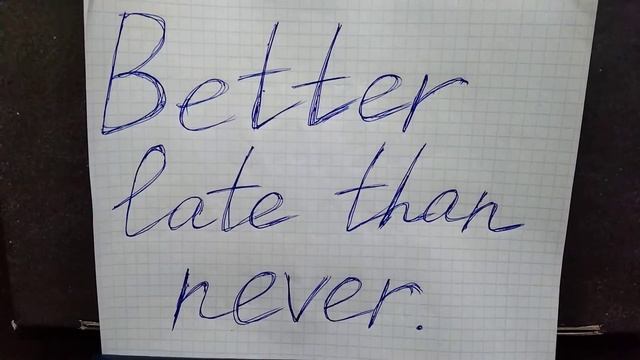 Better
late than
never.